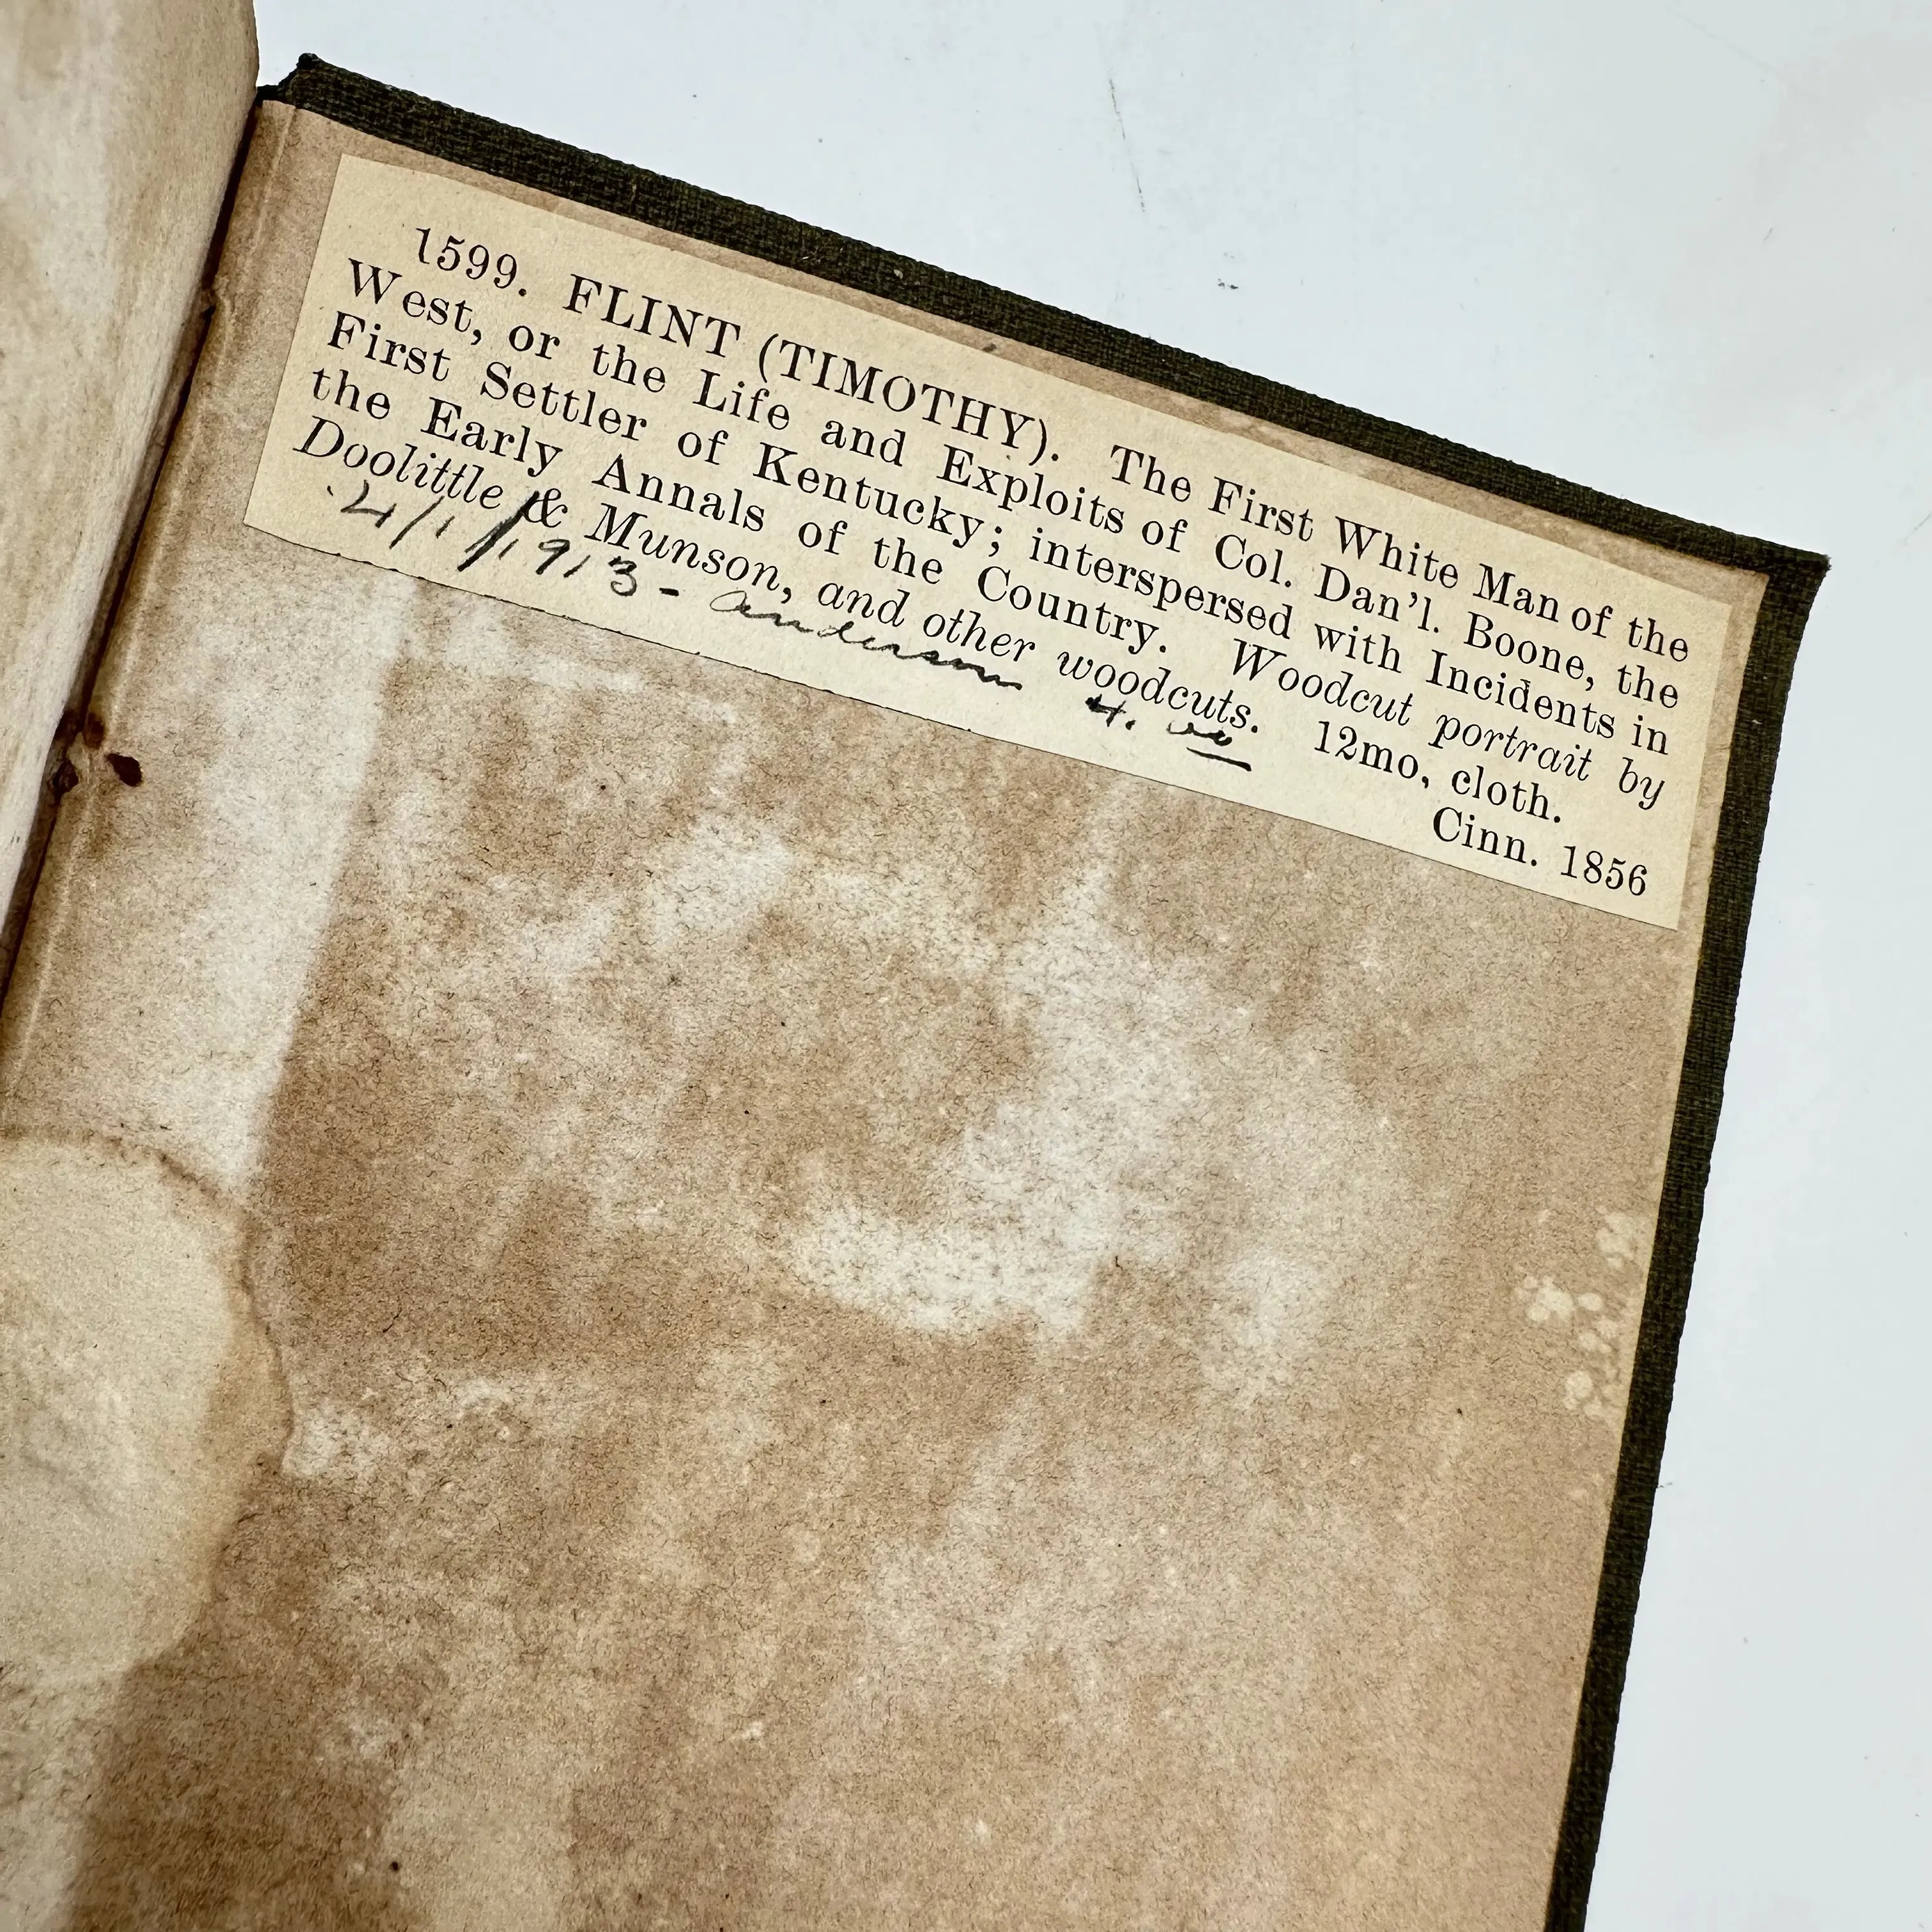 1599. FLINT (TIMOTHY). The First White Man of the
West, or the Life and Exploits of Col. Dan'l. Boone, the
First Settler of Kentucky; interspersed with Incidents in
the Early Annals of the Country. Woodcut portrait by
Doolittle & Munson, and other woodcuts. 12mo, cloth.
Cinn. 1856
4/1/1913 - Anderson 4.00